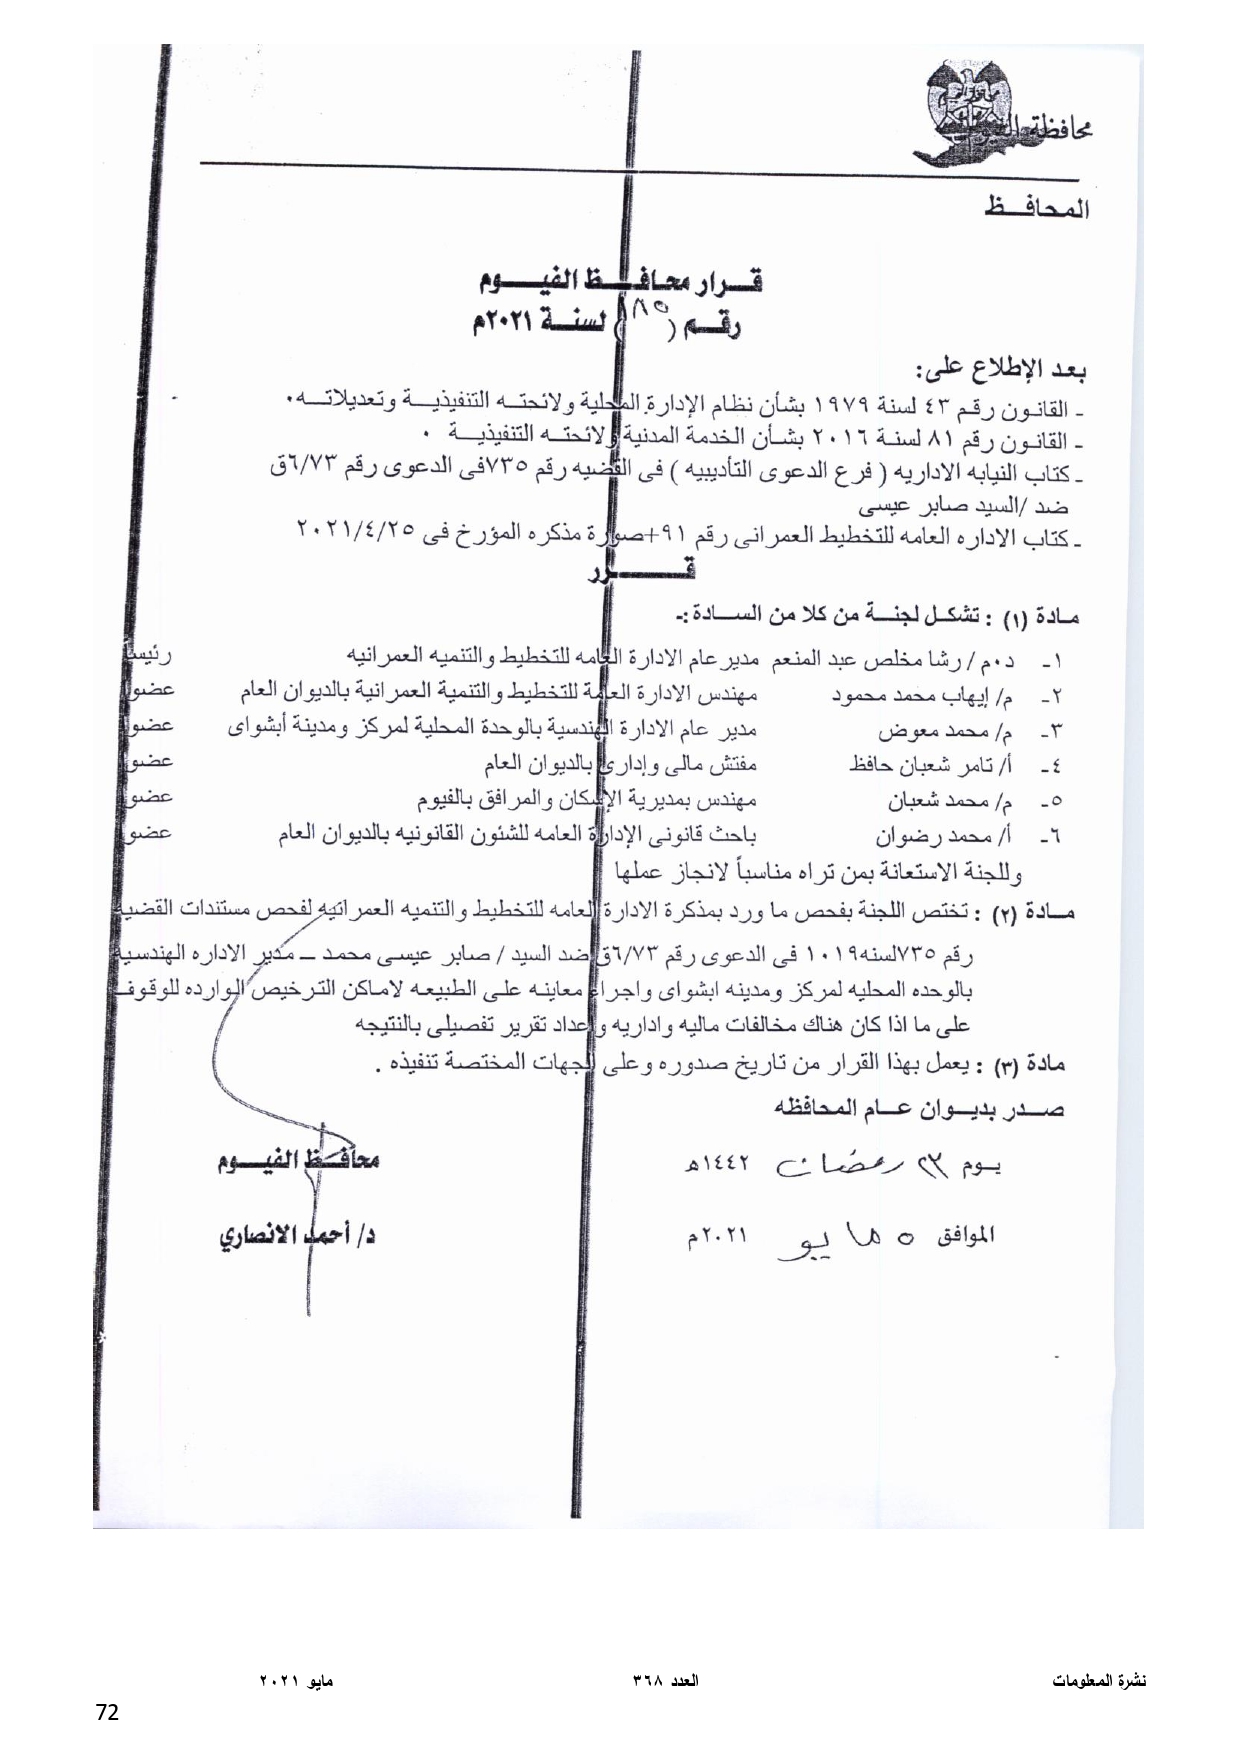 محافظة الفيوم
المحافـــظ
قـــرار محافـــظ الفيـــوم
رقـــم ( ) لسنـــة ٢٠٢١م
بعد الإطلاع على:
ـ القانون رقم ٤٣ لسنة ١٩٧٩ بشأن نظام الإدارة المحلية ولائحته التنفيذية وتعديلاته٠
ـ القانون رقم ٨١ لسنة ٢٠١٦ بشأن الخدمة المدنية ولائحته التنفيذية ٠
ـ كتاب النيابه الاداريه ( فرع الدعوى التأديبيه ) فى القضيه رقم ٧٣٥فى الدعوى رقم ٦/٧٣ق
ضد /السيد صابر عيسى
ـ كتاب الاداره العامه للتخطيط العمرانى رقم ٩١+صورة مذكره المؤرخ فى ٢٠٢١/٤/٢٥
قـــــرر
مادة (١) : تشكل لجنة من كلا من السادة :-
١- د٠م / رشا مخلص عبد المنعم مدير عام الادارة العامه للتخطيط والتنميه العمرانيه رئيساً
٢- م/ إيهاب محمد محمود مهندس الادارة العامة للتخطيط والتنمية العمرانية بالديوان العام عضو
٣- م/ محمد معوض مدير عام الادارة الهندسية بالوحدة المحلية لمركز ومدينة أبشواى عضو
٤- أ/ تامر شعبان حافظ مفتش مالى وإدارى بالديوان العام عضو
٥- م/ محمد شعبان مهندس بمديرية الإسكان والمرافق بالفيوم عضو
٦- أ/ محمد رضوان باحث قانونى الإدارة العامه للشئون القانونيه بالديوان العام عضو
وللجنة الاستعانة بمن تراه مناسباً لانجاز عملها
مادة (٢) : تختص اللجنة بفحص ما ورد بمذكرة الادارة العامه للتخطيط والتنميه العمرانيه لفحص مستندات القضيه
رقم ٧٣٥لسنه٢٠١٩ فى الدعوى رقم ٦/٧٣ق ضد السيد / صابر عيسى محمد ـ مدير الاداره الهندسيه
بالوحده المحليه لمركز ومدينه ابشواى واجراء معاينه على الطبيعه لاماكن الترخيص الوارده للوقوف
على ما اذا كان هناك مخالفات ماليه واداريه واعداد تقرير تفصيلى بالنتيجه
مادة (٣) : يعمل بهذا القرار من تاريخ صدوره وعلى الجهات المختصة تنفيذه .
صـدر بديـوان عـام المحافظه
يـوم ٢٣ رمضان ١٤٤٢هـ
محافـظ الفيـوم
الموافق ٥ مايو ٢٠٢١م
د/ أحمد الانصاري
نشرة المعلومات العدد ٣٦٨ مايو ٢٠٢١
72